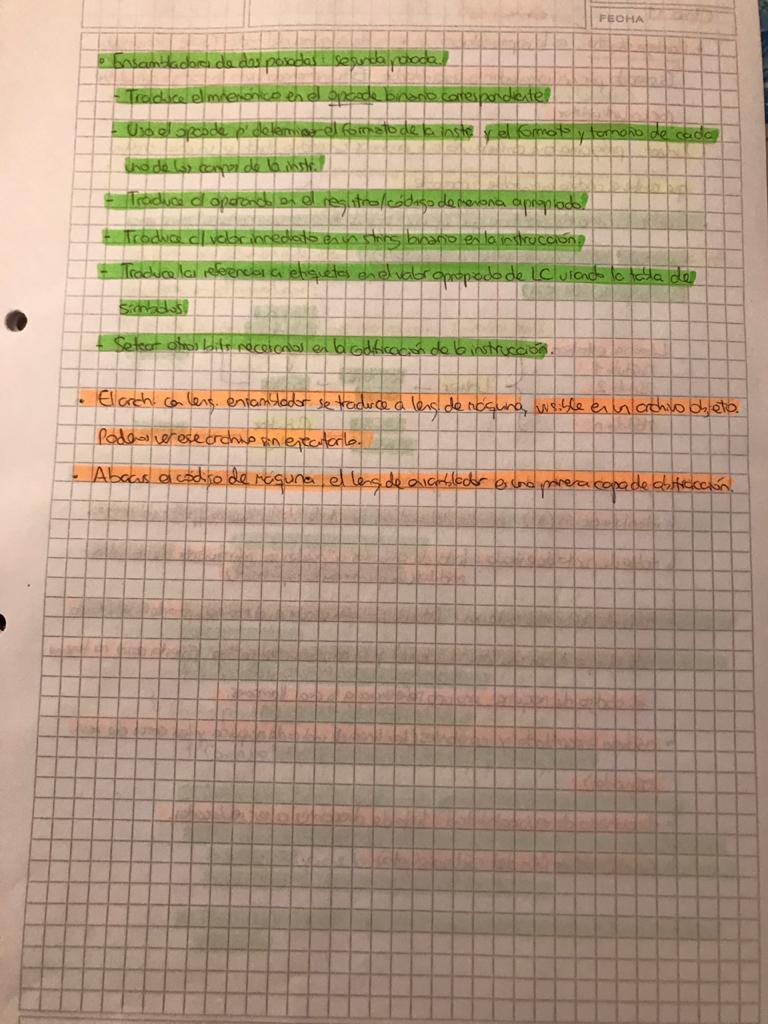 FECHA
• Ensambladores de dos pasadas: segunda pasada
- Traduce el mnemónico en el opcode binario correspondiente
- Usa el opcode p' determinar el formato de la instr y el formato y tamaño de cada
uno de los campos de la instr.
- Traduce el operando en el registro/código de memoria apropiado.
- Traduce el valor inmediato en un string binario en la instrucción
- Traduce las referencias a etiquetas en el valor apropiado de LC usando la tabla de
símbolos.
- Setear otros bits necesarios en la codificación de la instrucción.
• El archi con leng. ensamblador se traduce a leng de máquina, visible en un archivo objeto.
Podemos ver ese archivo sin ejecutarlo.
• el código de máquina, el leng de ensamblador es una primera capa de abstracción.